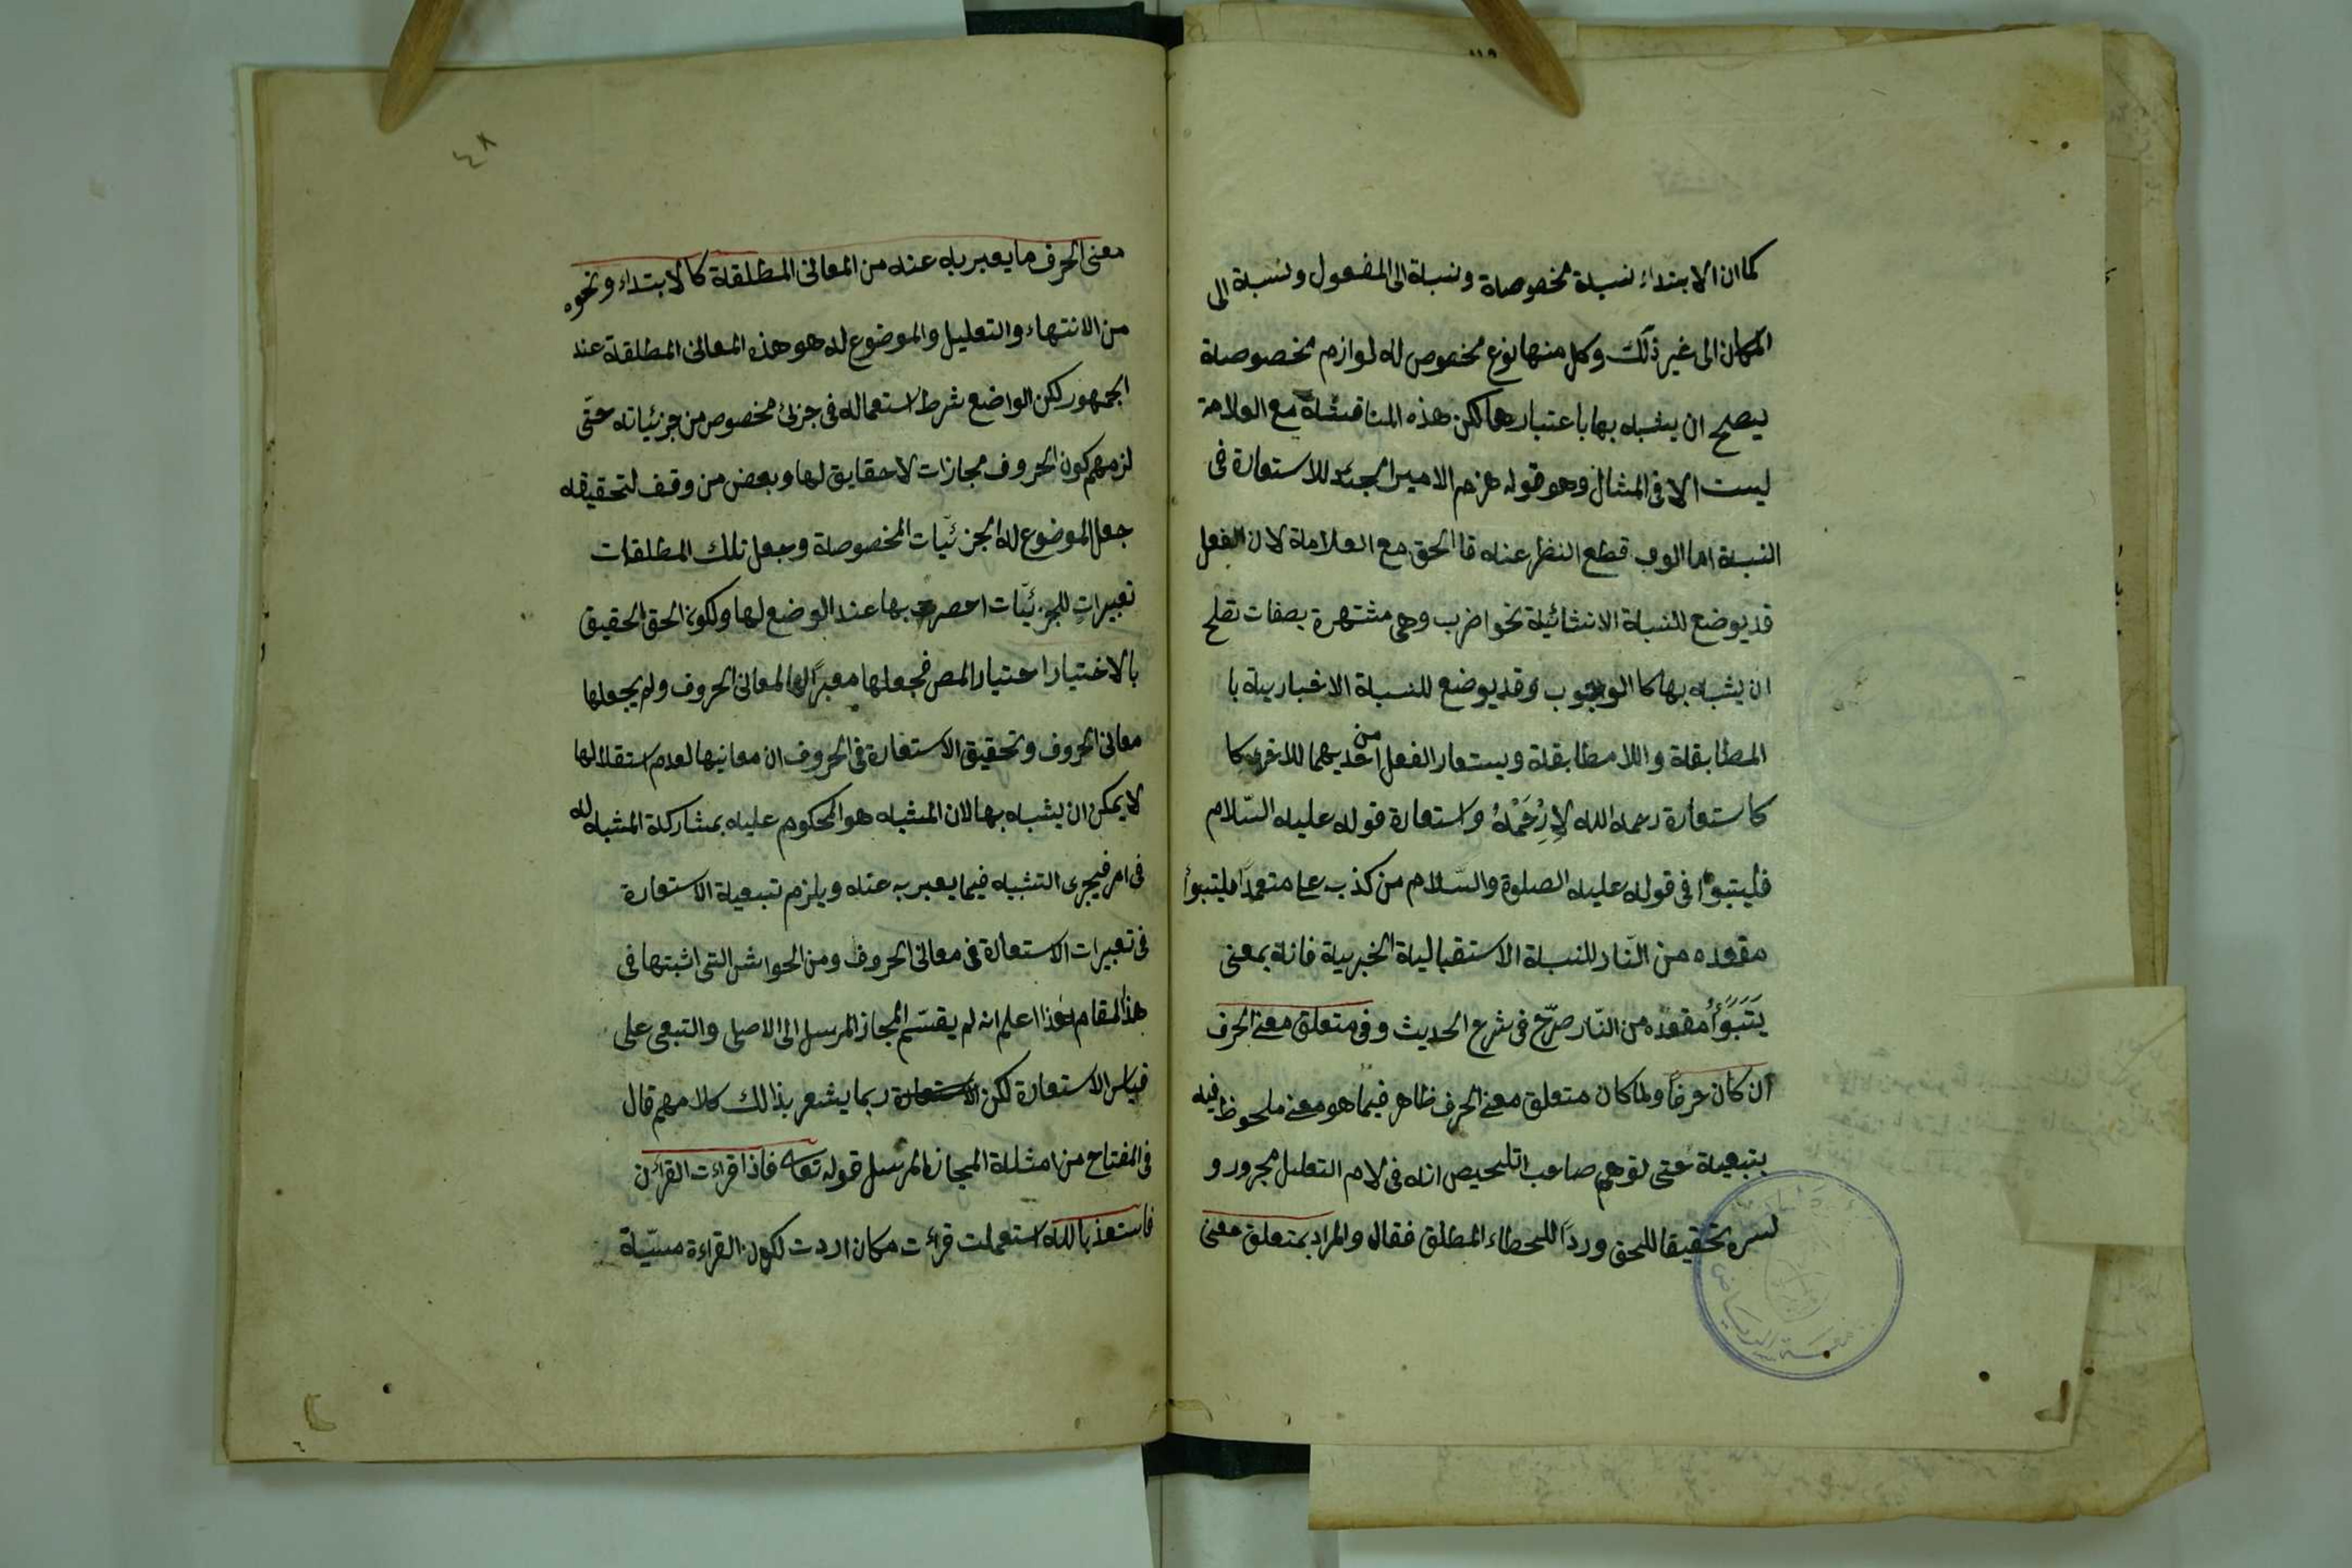 كما ان الابتداء نسبة مخصوصة ونسبة الى المفعول ونسبة الى
المكان الى غير ذلك وكل منها نوع مخصوص له لوازم مخصوصة
يصح ان يشبه بها باعتبارها لكن هذه المناقشة مع العلامة
ليست الا فى المثال وهو قوله هزم الامير الجند للاستعارة فى
النسبة اما لو قطع النظر عنه فا الحق مع العلامة لان الفعل
قد يوضع للنسبة الانشائية نحو اضرب وهى مشتهرة بصفات تصلح
ان يشبه بها كا الوجوب وقد يوضع للنسبة الاخبارية با
المطابقة واللا مطابقة ويستعار الفعل من احديهما للاخرى كا
كاستعارة رحمه الله لِارْحَمْهُ واستعارة قوله عليه السّلام
فليتبوأ فى قوله عليه الصلوة والسّلام من كذب على متعمداً فليتبوأ
مقعده من النّار للنسبة الاستقبالية الخبرية فانة بمعنى
يَتَبَوَّأُ مقعده من النّار صرّح فى شرح الحديث وفى متعلق معنى الحرف
ان كان حرفاً ولما كان متعلق معنى الحرف ظاهر فيما هو معنى ملحوظ فيه
بتبعية حتى توهم صاحب التلخيص انه فى لام التعليل مجرور و
لسره تحقيقا للحق ورداً للخطاء المطلق فقال والمراد بمتعلق معنى
٤٨
معنى الحرف ما يعبر به عنه من المعانى المطلقة كالابتداء ونحوه
من الانتهاء والتعليل والموضوع له هو هذه المعانى المطلقة عند
الجمهور لكن الواضع شرط استعماله فى جزئ مخصوص من جزئياته حتّى
لزمهم كون الحروف مجازات لا حقايق لها وبعض من وقف لتحقيقه
جعل الموضوع له الجزئيّات المخصوصة وجعل تلك المطلقات
تعبيراتٍ للجزئيّات بها عند الوضع لها ولكون الحق الحقيق
بالاختيار اختيار المص فجعلها معبراً لها لمعانى الحروف ولم يجعلها
معانى الحروف وتحقيق الاستعارة فى الحروف ان معانيها لعدم استقلالها
لا يمكن ان يشبه بها لان المشبه هو المحكوم عليه بمشاركة المشبه له
فى امر فيجرى التشبيه فيما يعبر به عنه ويلزم تبعية الاستعارة
فى تعبيرات الاستعارة فى معانى الحروف ومن الحواش التى اثبتها فى
هذا المقام هذا اعلم انه لم يقسّم المجاز المرسل الى الاصلى والتبعى على
قياس الاستعارة لكن ربما يشعر بذالك كلامهم قال
فى المفتاح من امثلة المجاز المرسل قوله تعا فاذا قراءت القرأن
فاستعذ بالله استعملت قرأت مكان اردت لكون القراءة مسبّبة